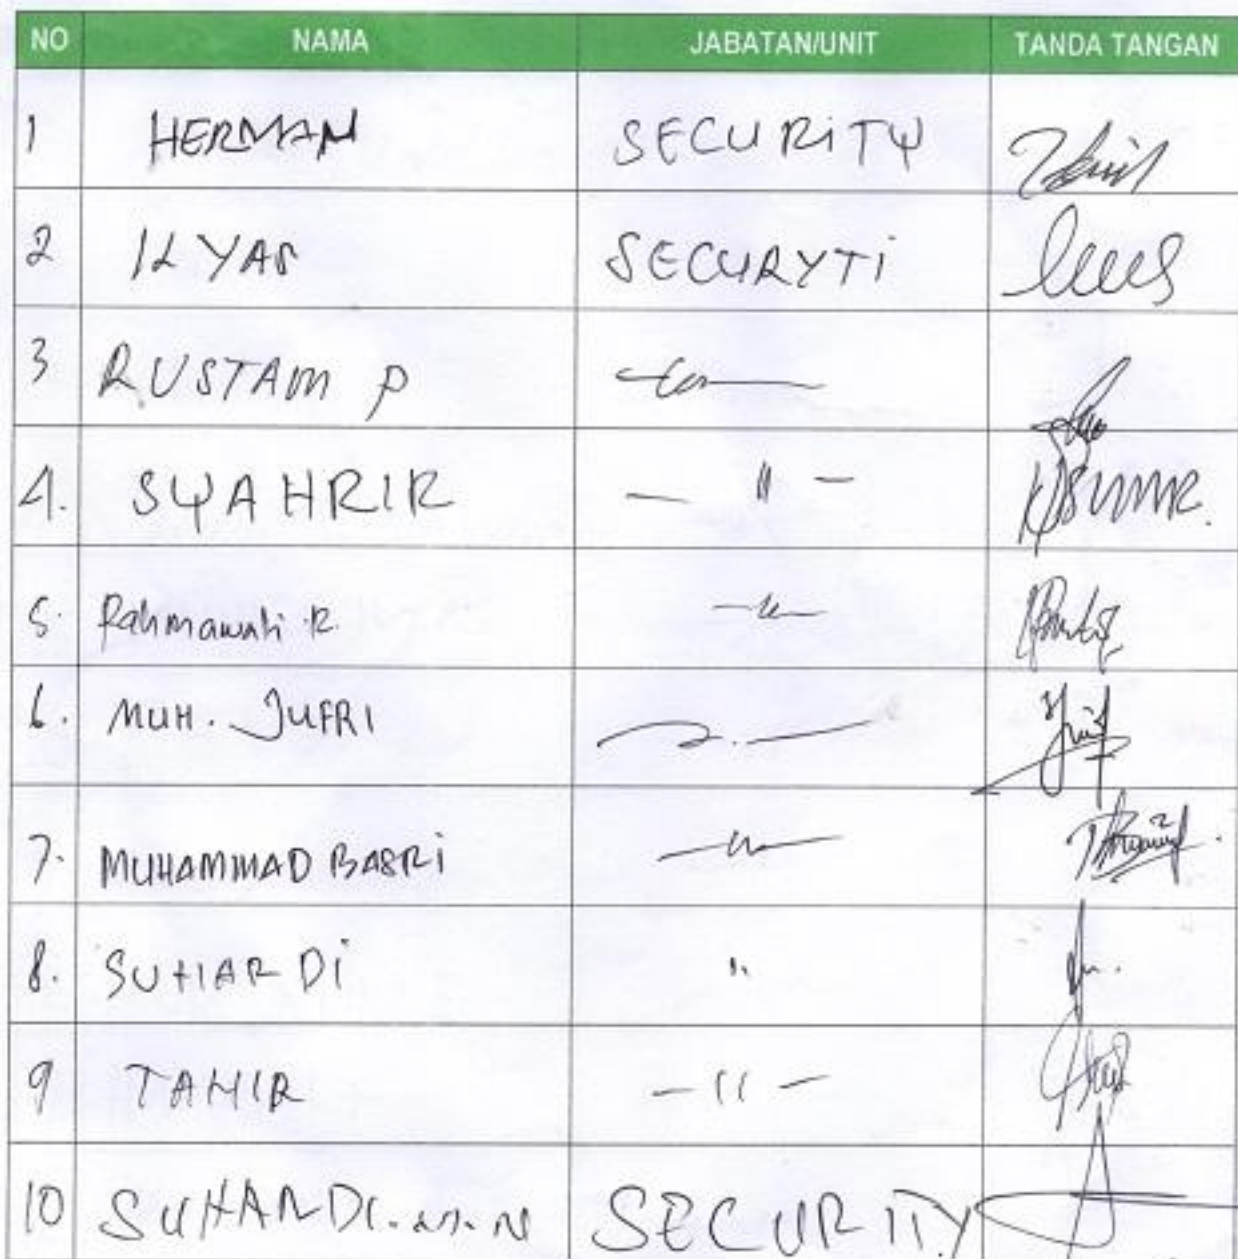 NO NAMA JABATAN/UNIT TANDA TANGAN
1 HERMAN SECURITY
2 ILYAS SECURYTI
3. RUSTAM P
4. SYAHRIR — " —
5. Rahmawati .R. — " —
6. MUH. JUFRI
7. MUHAMMAD BASRI — " —
8. SUHARDI "
9 TAHIR — " —
10 SUHARDI. SECURITY